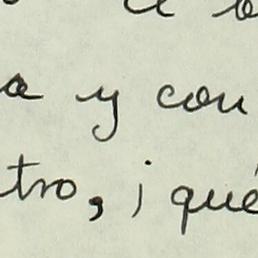 a y con
tro, ¡qué